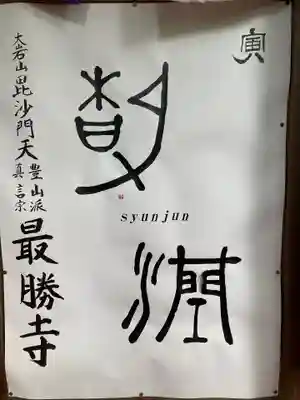 寅
syunjun
大岩山毘沙門天
真言宗豊山派
最勝寺